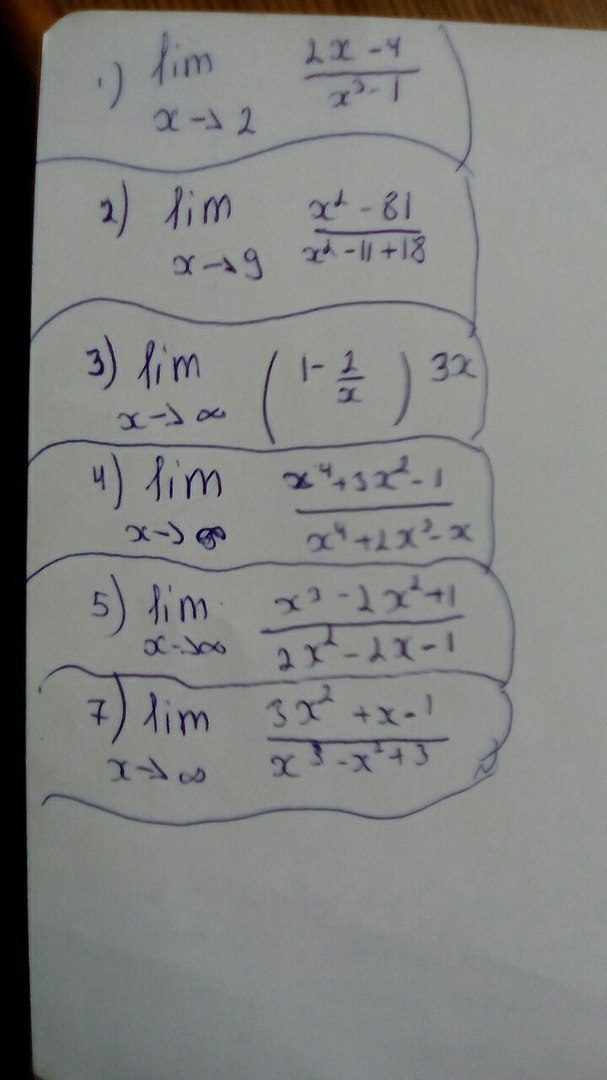 1) lim 2x-4
x→2 x³-1
2) lim x²-81
x→9 x²-11+18
3) lim (1-2/x) 3x
x→∞
4) lim x⁴+3x²-1
x→∞ x⁴+2x³-x
5) lim x³-2x²+1
x→∞ 2x²-2x-1
7) lim 3x²+x-1
x→∞ x³-x²+3